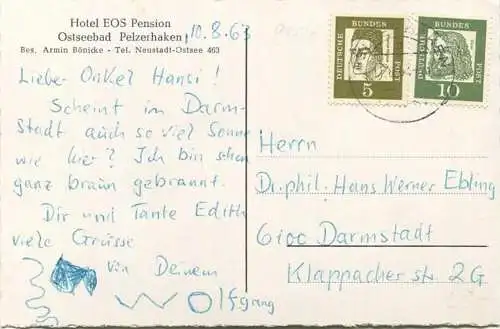 Hotel EOS Pension
Ostseebad Pelzerhaken
Bes. Armin Bönicke - Tel. Neustadt-Ostsee 463
10.8.63
Liebe Onkel Hansi!
Scheint in Darm-
Stadt auch so viel Sonne
wie hier? Ich bin schon
ganz braun gebrannt.
Dir und Tante Edith
viele Grüsse
von Deinem
Wolfgang
DEUTSCHE
BUNDES
POST
5
DEUTSCHE
BUNDES
POST
10
Herrn
Dr. phil. Hans Werner Ebling
6100 Darmstadt
Klappacher str. 2G